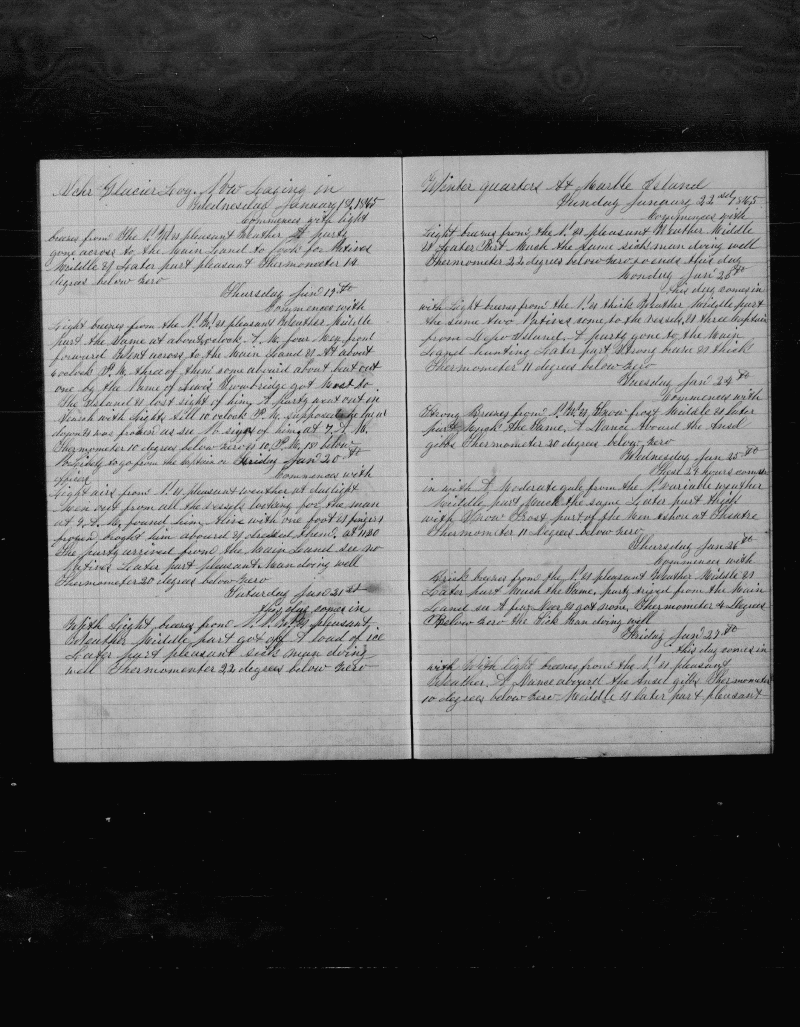 Schr Glacier Log. Now Laging in
Wednesday January 18, 1865
Commences with light
breres from The N.W. & pleasant Weather A party
gone across to the Main Land to Look for Natives
Middle & Later part pleasant Thermometer 14
degrees below zero
Thursday Jan 19th
Commences with
Light breres from the N.W. & pleasant Weather Middle
part the Same at about oclock A.M. four Men from
forward Went across to the Main Land & At about
6 oclock P.M. three of them come aboard about but out
one by the Name of Lewis got Most to
the Island & lost sight of him, A party went out in
Search with Lights till 10 oclock P.M. suppose he
was frozen as see No signs of him, at 7 A.M.
Thermometer 10 degrees below zero & 10 P.M. 18 below
to go from the Captain or
oficer
Friday Jan 20th
Commences with
Light airs from N. & pleasant weather at daylight
Men out from all the vessels looking for the man
at 9 A.M. found him Alive with one foot & fingers
frozen broght him aboard & dressed them, at 11.30
The party arrived from the Main Land see no
Natives Later part pleasant. Man doing well
Thermometer 20 degrees below zero
Saturday Jan 21st
this day comes in
With Light breres from N.N.W. & pleasant
Weather Middle part got off A load of ice
Later part pleasant sick man doing
well Thermomenter 22 degrees below zero
Winter quarters At Marble Island
Sunday January 22nd 1865
Commences with
Light breres from the N. & pleasant Weather Middle
& Later Part Much the same sick man doing well
Thermometer 22 degrees below zero so ends this day
Monday Jan 23th
this day comes in
with Light breres from the N. & thick Weather Middle part
the same two Natives come to the vessels, & three Captain
from Depo Island. A party gone to the Main
Land hunting Later part Strong brere & thick
Thermometer 11 degrees below zero
Tuesday Jan 24th
Commences with
Strong Breres from N.W. & Snow frost Middle & later
part Much the Same, A Dance Aboard the Ansel
gibbs Thermometer 20 degrees below zero
Wednesday Jan 25th
These 24 hours comes
in with A Moderate gale from the N. variable weather
Middle part Much the same Later part thick
with Snow Frost part of the Men ashou at Theatre
Thermometer 11 degrees below zero
Thursday Jan 26th
Commences with
Brick breres from the N. & pleasant Weather Middle &
Later part Mush the Same, party arived from the Main
Land see A few Deer & got none, Thermometer 4 degrees
Below zero the Sick Man doing well
Friday Jan 27th
this day comes in
with With light breres from the N. & pleasant
Weather, A Danse abourd the Ansel gibbs Thermometer
10 degrees below zero Middle & later part pleasant